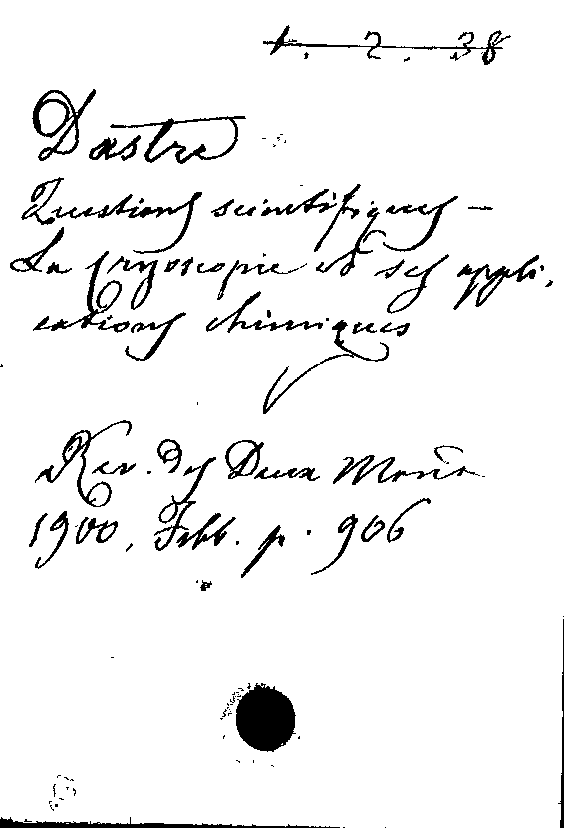 1. 2. 38
Dastre
Questions scientifiques –
La cryoscopie et ses appli,
cations chimiques
Rev. des Deux Mond
1900, Febb. p. 906